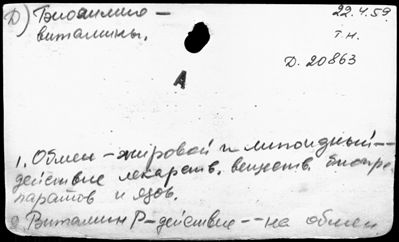 Д) Биохимия —
витамины.
22.4.59.
т.н.
Д. 20863
А
1. Обмен – жировой и липоидный –
действие лекарств. веществ, биопре
паратов и ядов.
2. Витамин Р – действие – – на обмен